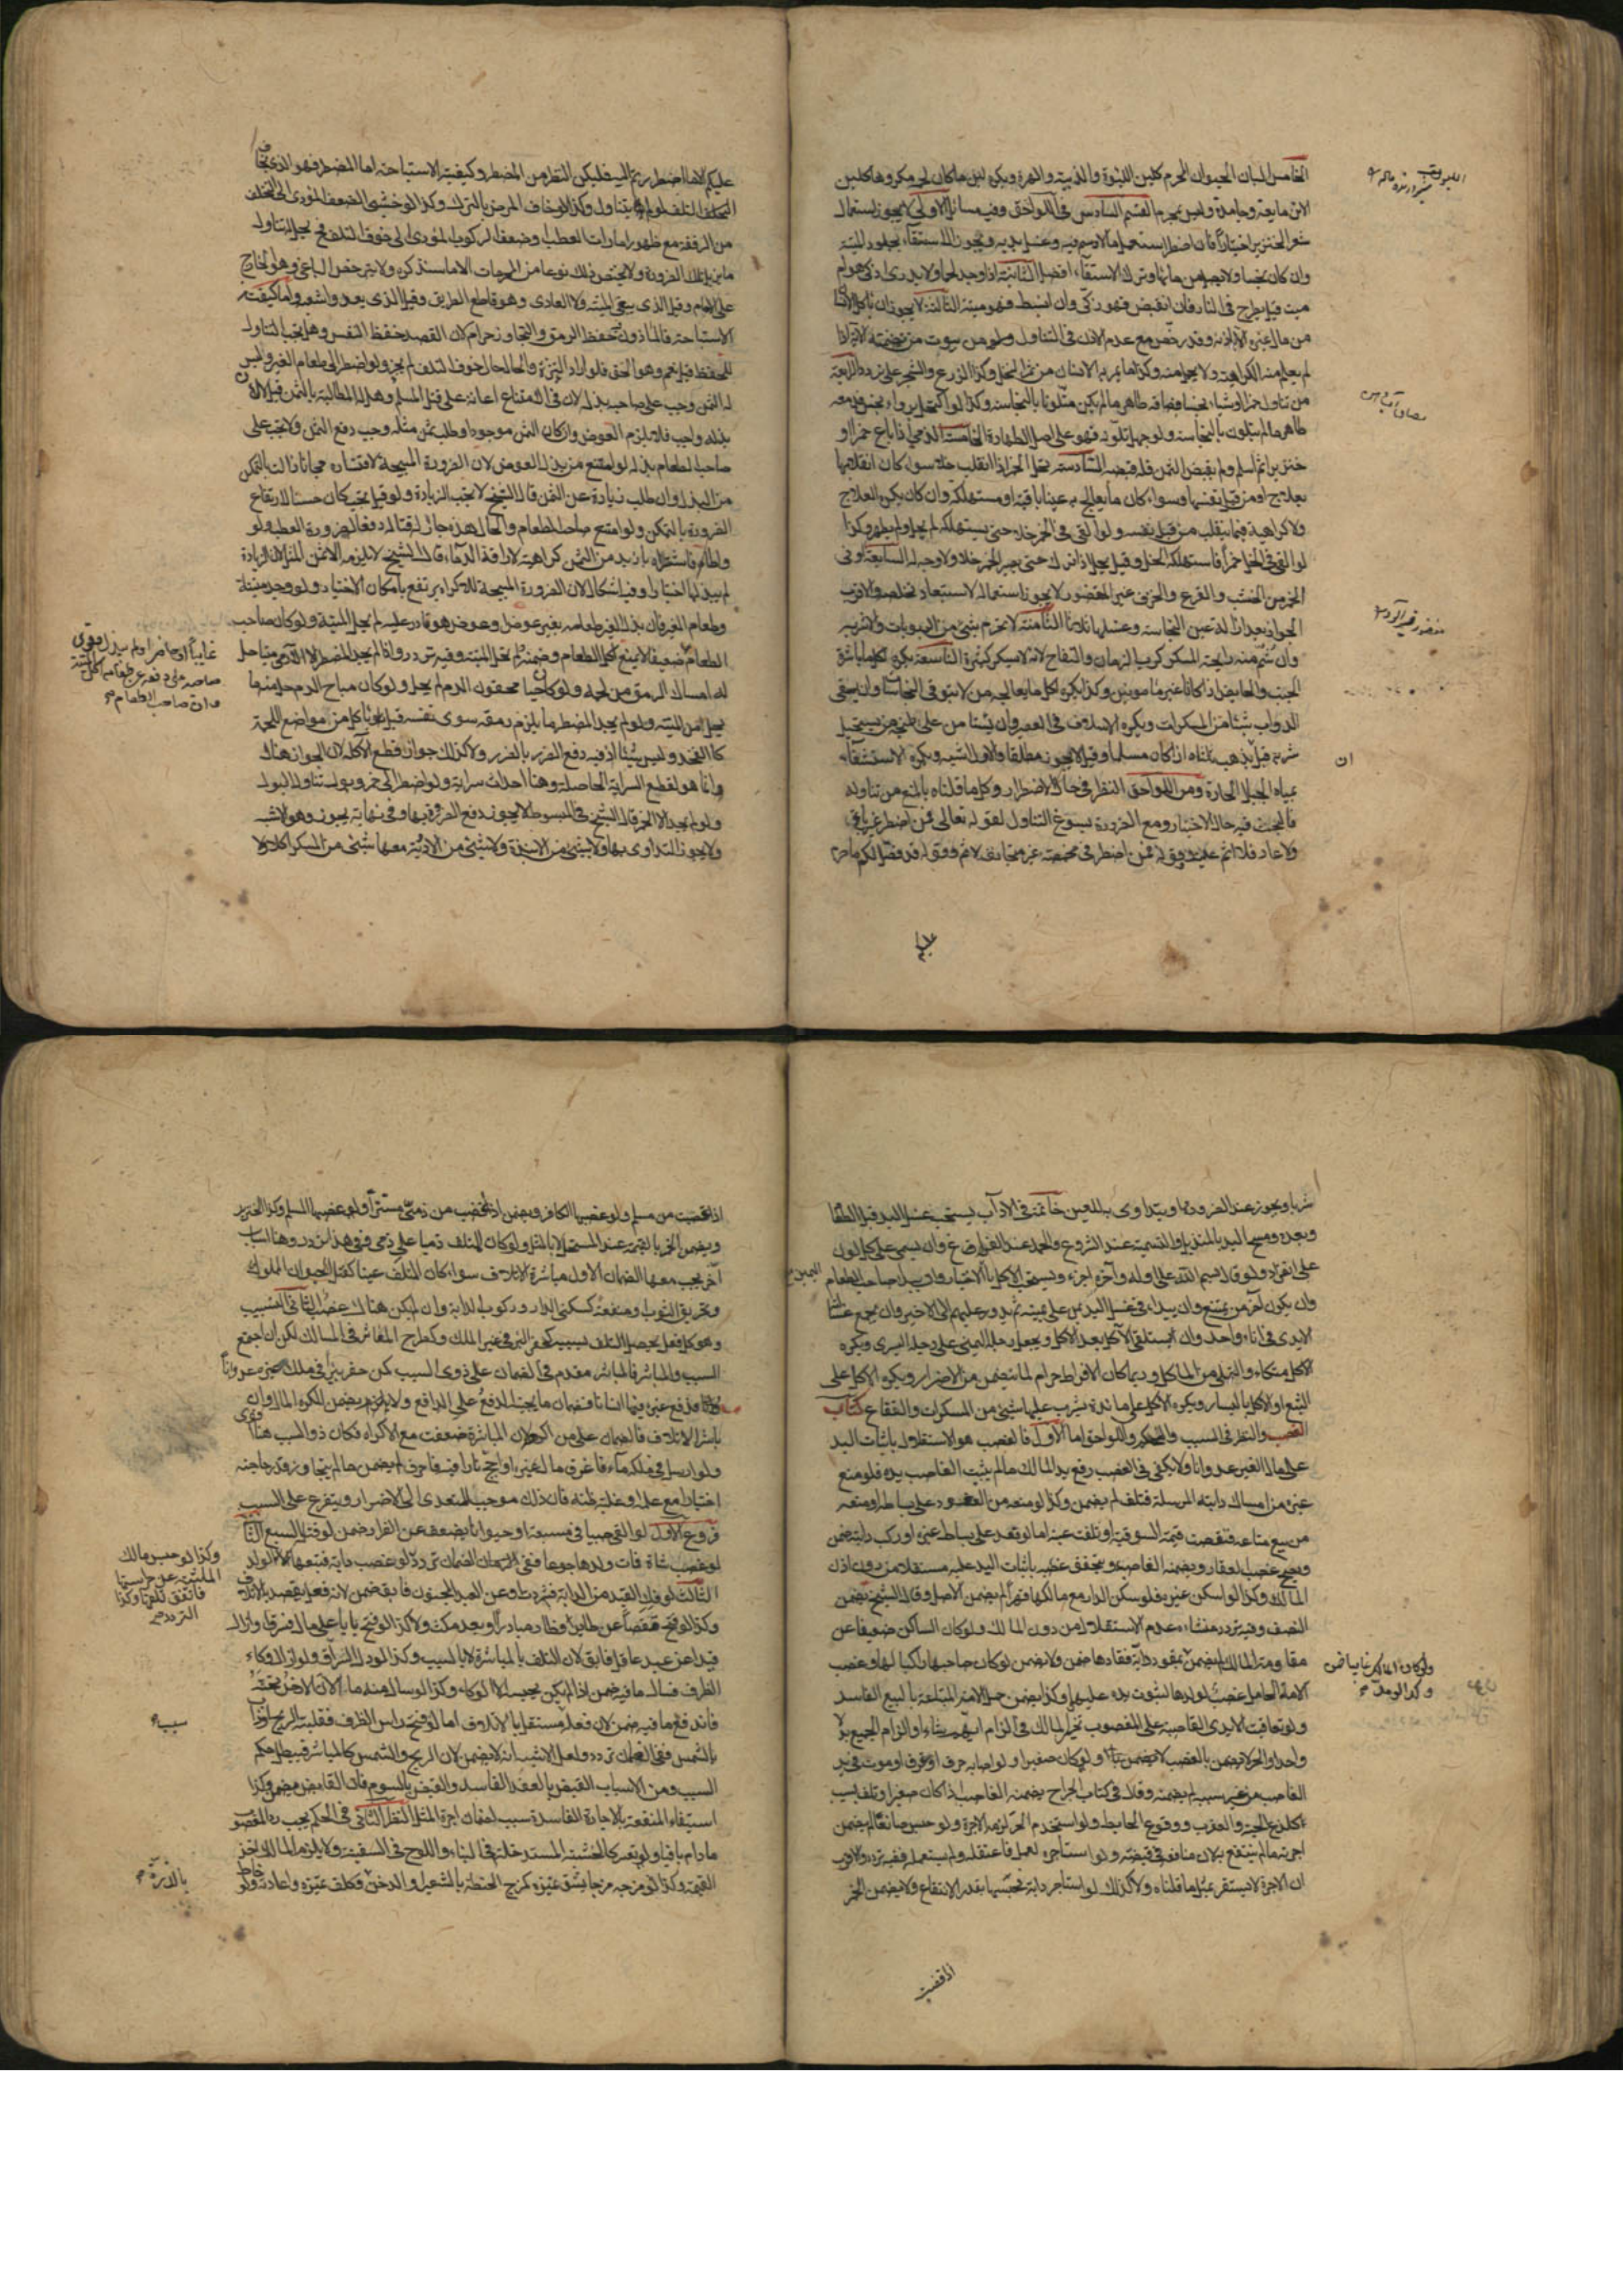 الخامس البان الحيوان المحرم كلبن اللبوة والذئبة والهرة ويكره لبن ما كان لحمه مكروها كلبن
الاتن مايعة وجامدة وليس بمحرم القسم السادس في اللواحق وفيه مسائل الاولى لا يجوز استعمال
شعر الخنزير اختيارا فان اضطر استعمل ما لا دسم فيه وغسل يديه ويجوز الاستقاء بجلود الميتة
وان كان نجسا ولا يصلى من مائها وترك الاستقاء افضل الثانية اذا وجد لحما ولا يدرى اذكى هو ام
ميت قيل يطرح في النار فان انقبض فهو ذكى وان انبسط فهو ميتة الثالثة لا يجوز ان ياكل الانسان
من مال غيره الا باذنه وقد رخص مع عدم الاذن في التناول ولو من بيوت من تضمنته الاية اذا
لم يعلم منه الكراهية ولا يحمل منه وكذا ما يمر به الانسان من ثمر النخل وكذا الزرع والشجر على تردد الرابعة
من تناول خمرا او شيئا نجسا فبصاقه طاهر ما لم يكن متلونا بالنجاسة وكذا لو اكتحل بدواء نجس فدمعه
طاهر ما لم يتلون بالنجاسة ولو جهل تلونه فهو على اصل الطهارة الخامسة الذمي اذا باع خمرا او
خنزيرا ثم اسلم ولم يقبض الثمن فله قبضه السادسة تحل الخمر اذا انقلب خلا سواء كان انقلابها
بعلاج او من قبل نفسها وسواء كان ما يعالج به عينا باقية او مستهلكة وان كان يكره العلاج
ولا كراهية فيما ينقلب من قبل نفسه ولو القى في الخمر خل حتى يستهلكه لم يحل ولم يطهر وكذا
لو القى في الخل خمرا فاستهلكه الخل وقيل يحل اذا ترك حتى يصير الخمر خلا ولا وجه له السابعة اوانى
الخمر من الخشب والقرع والخزف غير المغضور لا يجوز استعماله لاستبعاد تخلصه والاقرب
الجواز بعد ازالة عين النجاسة وغسلها ثلاثا الثامنة لا يحرم شئ من الربوبات والاشربة
وان شم منه رايحة المسكر كرب الرمان والتفاح لانه لا يسكر كثيره التاسعة يكره اكل ما باشره
الجنب والحايض اذا كانا غير مامونين وكذا يكره اكل ما يعالجه من لا يتوقى النجاسات وان يسقى
الدواب شيئا من المسكرات ويكره الاسلاف في العصير وان يستامن على طبخه من يستحل
شربه قبل ان يذهب ثلثاه اذا كان مسلما وقيل لا يجوز مطلقا والاول اشبه ويكره الاستشفاء
بمياه الجبال الحارة ومن اللواحق النظر في حال الاضطرار وكل ما قلناه بالمنع من تناوله
فالبحث فيه حال الاختيار ومع الضرورة يسوغ التناول لقوله تعالى فمن اضطر غير باغ
ولا عاد فلا اثم عليه وقوله فمن اضطر في مخمصة غير متجانف لاثم وقوله قد فصل لكم ما حرم
ان
عليكم الا ما اضطررتم اليه فليكن النظر من المضطر وكيفية الاستباحة اما المضطر فهو الذي يخاف
التلف لو لم يتناول وكذا لو خاف المرض بالترك وكذا لو خشى الضعف المؤدى الى التخلف
من الرفقة مع ظهور امارات العطب او ضعف الركوب المؤدى الى خوف التلف فح يحل له تناول
ما يزيل تلك الضرورة ولا يختص ذلك نوعا من المحرمات الا ما سنذكره ولا يترخص الباغي وهو الخارج
على الامام وقيل الذي يبغي الميتة ولا العادي وهو قاطع الطريق وقيل الذي يعدو شبعه واما كيفية
الاستباحة فالماذون حفظ الرمق والتجاوز حرام لان القصد حفظ النفس وهل يجب التناول
للحفظ قيل نعم وهو الحق فلو اراد التنزه والحال حال خوف التلف لم يجز ولو اضطر الى طعام الغير وليس
له الثمن وجب على صاحبه بذله لان في الامتناع اعانة على قتل المسلم وهل له المطالبة بالثمن قيل لا لان
بذله واجب فلا يلزم العوض وان كان الثمن موجودا وطلب ثمن مثله وجب دفع الثمن ولا يجب على
صاحب الطعام بذله لو امتنع من بذل العوض لان الضرورة المبيحة لاقتساره مجانا زالت بالتمكن
من البذل وان طلب زيادة عن الثمن قال الشيخ لا تجب الزيادة ولو قيل تجب كان حسنا لارتفاع
الضرورة بالتمكن ولو امتنع صاحب الطعام والحال هذه جاز له قتاله دفعا لضرورة العطب ولو
واطاه فاشتراه بازيد من الثمن كراهية لاراقة الدماء قال الشيخ لا يلزمه الا ثمن المثل لان الزيادة
لم يبذلها اختيارا وفيه اشكال لان الضرورة المبيحة للاكراه ترتفع بامكان الاختيار ولو وجد ميتة
وطعام الغير فان بذل الغير طعامه بغير عوض او عوض هو قادر عليه لم يحل الميتة ولو كان صاحب
الطعام ضعيفا لا يمنع اكل الطعام وضمنه ولم تحل الميتة وفيه تردد واذا لم يجد المضطر الا الآدمي ميتا حل
له امساك الرمق من لحمه ولو كان حيا محقون الدم لم يحل ولو كان مباح الدم حل منه ما
يحل من الميتة ولو لم يجد المضطر ما يلزم رمقه سوى نفسه قيل ياكل من مواضع اللحمة
كالفخذ وليس شيئا اذ فيه دفع الضرر بالضرر ولا كذلك جواز قطع الآكلة لان الجواز هناك
وانما هو لقطع السراية الحاصلة وهنا احداث سراية ولو اضطر الى خمر وبول تناول البول
ولو لم يجد الا الخمر قال الشيخ في المبسوط لا يجوز دفع الضرورة بها وفي نهاية يجوز وهو الاشبه
ولا يجوز التداوى بها ولا بشئ من الانبذة ولا بشئ من الادوية معها شئ من المسكر اكلا ولا
غايبا او حاضرا ولم يبذل وقوى
صاحبه على دفعه عن طعامه اكل الميتة
وان صاحب الطعام
شربا ويجوز عند الضرورة ان يتداوى به للعين خاتمة في الاداب يستحب غسل اليد قبل الطعام
وبعده ومسح اليد بالمنديل والتسمية عند الشروع والحمد عند الفراغ وان يسمى على كل لون
على انفراده ولو قال بسم الله على اوله وآخره اجزء ويستحب الاكل بالاختيار وان يبدء صاحب الطعام
وان يكون آخر من يمتنع وان يبداء في غسل اليد بمن على يمينه ثم يدور عليهم الى الاخير وان يجمع غسالة
الايدى في اناء واحد وان يستلقى الآكل بعد الاكل ويجعل رجله اليمنى على رجله اليسرى ويكره
الاكل متكئا والتملى من الماكل وربما كان الافراط حرام لما يتضمن من الاضرار ويكره الاكل على
الشبع او الاكل باليسار ويكره الاكل على مائدة يشرب عليها شئ من المسكرات والفقاع كتاب
الغصب والنظر في السبب والحكم واللواحق اما الاول فالغصب هو الاستقلال باثبات اليد
على مال الغير عدوانا ولا يكفى في الغصب رفع يد المالك ما لم يثبت الغاصب يده فلو منع
غيره من امساك دابته المرسلة فتلف لم يضمن وكذا لو منعه من القعود على بساطه او منعه
من بيع متاعه فنقصت قيمته السوقية او تلفت عينه اما لو قعد على بساط غيره او ركب دابته ضمن
ويصح غصب العقار ويضمنه الغاصب ويتحقق غصبه باثبات اليد عليه مستقلا من دون اذن
المالك وكذا لو اسكن غيره فلو سكن الدار مع مالكها قهرا لم يضمن الاصل وقال الشيخ يضمن
النصف وفيه تردد منشاءه عدم الاستقلال من دون المالك ولو كان الساكن ضعيفا عن
مقاومة المالك لم يضمن بمقود دابة فقادها ضمن ولا يضمن لو كان صاحبها راكبا لها وغصب
الامة الحامل غصب لولدها لثبوت يده عليهما وكذا يضمن حمل الامة المبتاعة بالبيع الفاسد
ولو تعاقبت الايدى الغاصبة على المغصوب تخير المالك في الزام ايهم شاء او الزام الجميع بدلا
واحدا والحر لا يضمن بالغصب لا يضمن ولو كان صغيرا ولو اصابه حرق او غرق او موت في يد
الغاصب من غير سببه لم يضمنه وقال في كتاب الجراح يضمنه الغاصب اذا كان صغيرا وتلف بسبب
كلدغ الحية والعقرب ووقوع الحايط ولو استخدم الحر لزمه الاجرة ولو حبس صانعا لم يضمن
اجرته ما لم ينتفع به لان منافعه في قبضته ولو استاجره لعمل فاعتقله ولم يستعمله ففيه تردد والاقرب
ان الاجرة لا يستقر لمثل ما قلناه ولا كذلك لو استاجر دابة فحبسها بقدر الانتفاع ولا يضمن الخمر
ولو كان المالك غايبا ضمن
وكذا لو مد
اذا غصبت من مسلم ولو غصبها الكافر ويضمن اذا غصب من ذمي مستترا ولو غصبها المسلم وكذا الخنزير
ويضمن الخمر بالقيمة عند المستحل لا بالمثل ولو كان المتلف ذميا على ذمي وفي هذا تردد وهنا اسباب
آخر يجب معها الضمان الاول مباشرة الاتلاف سواء كان المتلف عينا كقتل الحيوان المملوك
وتخريق الثوب او منفعة كسكنى الدار وركوب الدابة وان لم يكن هناك غصب الثاني التسبيب
وهو كل فعل يحصل التلف بسببه كحفر البئر في غير الملك وكطرح المعاثر في المسالك لكن ان اجتمع
السبب والمباشر فالمباشر مقدم في الضمان على ذوى السبب كمن حفر بئرا في ملك غيره عدوانا
فدفع غيره فيها انسانا فضمان ما يجنيه الدفع على الدافع ولا يضمن المكره المال وان
باشر الاتلاف فالضمان على من اكرهه لان المباشرة ضعفت مع الاكراه فكان ذو السبب هنا اقوى
ولو ارسل في ملكه ماء فاغرق مال غيره او اجج نارا فيه فاحرق لم يضمن ما لم يتجاوز قدر حاجته
اختيارا مع علمه او غلبة ظنه فان ذلك موجب للتعدى الى الاضرار ويتفرع على السبب
فروع الاول لو القى صبيا في مسبعة او حيوانا يضعف عن الفرار ضمن لو قتله السبع الثاني
لو غصب شاة فمات ولدها جوعا ففي الضمان تردد وكذا لو غصب دابة فتبعها الولد
الثالث لو فك القيد من الدابة فشردت او عن العبد المجنون فابق ضمن لانه فعل يقصد به الاتلاف
وكذا لو فتح قفصا عن طاير فطار مبادرا او بعد مكث ولا كذا لو فتح بابا على مال فسرق او ازال
قيدا عن عبد عاقل فابق لان التلف بالمباشرة لا بالسبب وكذا لو دل السراق ولو ازال وكاء
الظرف فسال ما فيه ضمن اذا لم يكن يحبسه الا الوكاء وكذا لو سال منه ما الان الارض تحته
فاندفع ما فيه ضمن لان فعله مستقل بالاتلاف اما لو فتح راس الظرف فقلبته الريح او ذاب
بالشمس ففي الضمان تردد ولعل الاشبه انه لا يضمن لان الريح والشمس كالمباشر فيبطل حكم
السبب ومن الاسباب القبض بالعقد الفاسد والقبض بالسوم فان القابض يضمن وكذا
استيفاء المنفعة بالاجارة الفاسدة سبب لضمان اجرة المثل النظر الثاني في الحكم يجب رد المغصوب
ما دام باقيا ولو تعسر كالخشبة المستدخلة في البناء واللوح في السفينة ولا يلزم المالك اخذ
القيمة وكذا لو مزجه مزجا يشق تميزه كمزج الحنطة بالشعير او الدخن وكلف تميزه واعادته ولو خاط
وكذا لو حبس مالك
الماشية عن حراستها
فاتفق تلفها وكذا
التردد
سبب
بالذرة
اذا غصبت